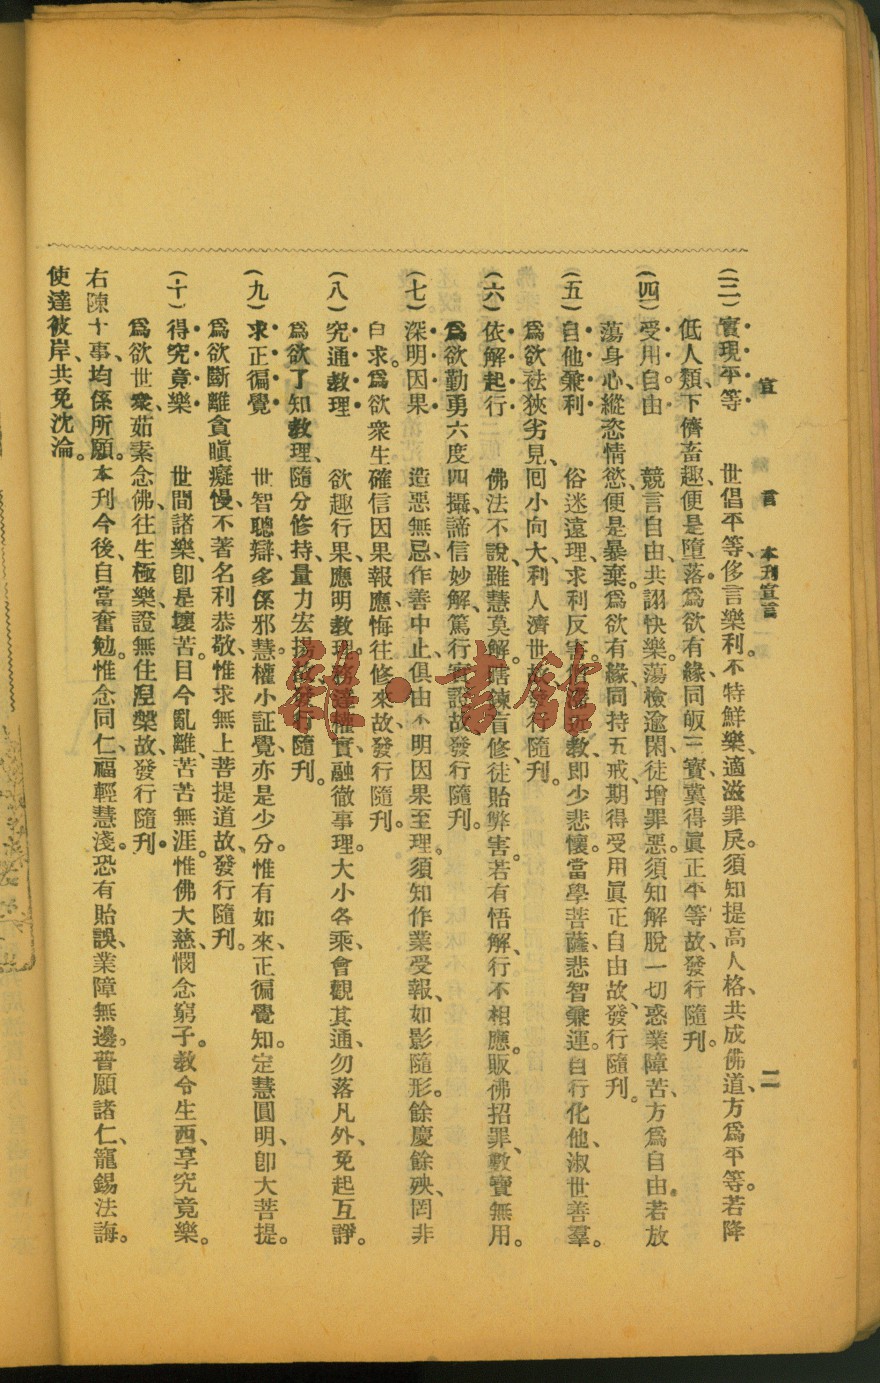 宣　言　本刊宣言　二
（三）實現平等　世倡平等、侈言樂利。不特鮮樂、適滋罪戾。須知提高人格、共成佛道、方爲平等。若降
低人類、下儕畜趣、便是墮落。爲欲有緣、同皈三寶、冀得眞正平等、故發行隨刊。
（四）受用自由　競言自由、共詡快樂。蕩檢逾閑、徒增罪惡。須知解脫一切惑業障苦、方爲自由。若放
蕩身心、縱恣情慾、便是暴棄。爲欲有緣、同持五戒、期得受用眞正自由、故發行隨刊。
（五）自他兼利　俗迷遠理、求利反害。教即少悲懷。當學菩薩、悲智兼運。自行化他、淑世善羣。
爲欲祛狹劣見、囘小向大、利人濟世、故發行隨刊。
（六）依解起行　佛法不說、雖慧莫解。瞎鍊盲修、徒貽弊害。若有悟解、行不相應。販佛招罪、數寶無用。
爲欲勤勇六度四攝、諦信妙解、篤行實證、故發行隨刊。
（七）深明因果　造惡無忌、作善中止、俱由不明因果至理。須知作業受報、如影隨形。餘慶餘殃、罔非
自求。爲欲衆生確信因果報應、悔往修來、故發行隨刊。
（八）究通教理　欲趣行果、應明教理。務達權實、融徹事理。大小各乘、會觀其通、勿落凡外、免起互諍。
爲欲了知教理、隨分修持、量力宏揚、故發行隨刊。
（九）求正徧覺　世智聰辯、多係邪慧。權小証覺、亦是少分。惟有如來、正徧覺知。定慧圓明、卽大菩提。
爲欲斷離貪瞋癡慢、不著名利恭敬、惟求無上菩提道故、發行隨刊。
（十）得究竟樂　世間諸樂、卽是壞苦。目今亂離、苦苦無涯。惟佛大慈、憫念窮子。教令生西、享究竟樂。
爲欲世衆、茹素念佛、往生極樂、證無住湼槃、故發行隨刊。
右陳十事、均係所願。本刊今後、自當奮勉。惟念同仁、福輕慧淺。恐有貽誤、業障無邊。普願諸仁、寵錫法誨。
使達彼岸、共免沈淪。
龍·書館